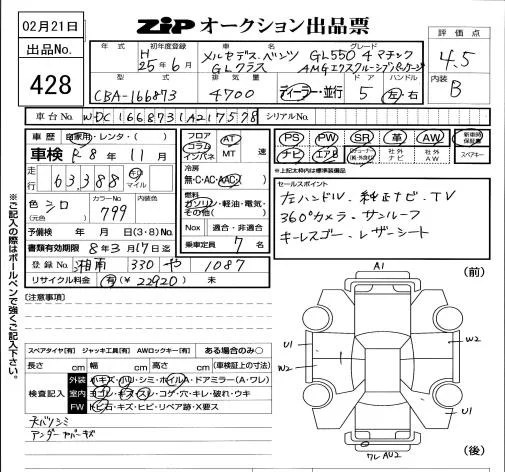 02月21日
出品No.
428
ZIP オークション出品票
評価点
4.5
内装
B
年式 初年度登録 車名 グレード
H 25年6月 メルセデス・ベンツ GLクラス GL550 4マチック AMGエクスクルーシブパッケージ
型式 排気量 ドア ハンドル
CBA-166873 4700 ディーラー・並行 5 左・右
車台No. WDC1668731A217578 シリアルNo.
車歴 自家用・レンタ・( )
車検 R8年11月
走行 63,388 km マイル
色 シロ (元色) カラーNo. 799 内装色
予備検 年 月 日(3・8)No.
書類有効期限 8年3月17日迄
登録No. 湘南 330 や 1087
リサイクル料金 有(¥22920) 未
フロア コラム インパネ AT MT 速
冷房 無・C・AC・AAC
燃料 ガソリン・軽油・電気・その他( )
Nox 適合・非適合
乗車定員 7名
PS PW SR 革 AW 新車時保証書
ナビ エアB 社外ナビ 社外AW スペアキー
*上記太枠内は標準装備品
セールスポイント
左ハンドル、純正ナビ・TV
360°カメラ・サンルーフ
キーレスゴー・レザーシート
〔注意事項〕
スペアタイヤ[有] ジャッキ工具[有] AWロックキー[有] ある場合のみ○
長さ cm 幅 cm 高さ cm (車検証上の寸法)
検査記入
外装 小キズ・小凹・シミ・ホイルA・ドアミラー(A・ワレ)
室内 ヨゴレ・キズ・スレ・コゲ・穴・キレ・破れ・ウキ
FW トビ石・キズ・ヒビ・リペア跡・X要ス
天バリシミ
アンダーカバーキズ
A1
(前)
U1
W2
W2
U1
ワレ AU2
(後)
ご記入の際はボールペンで強くご記入下さい。